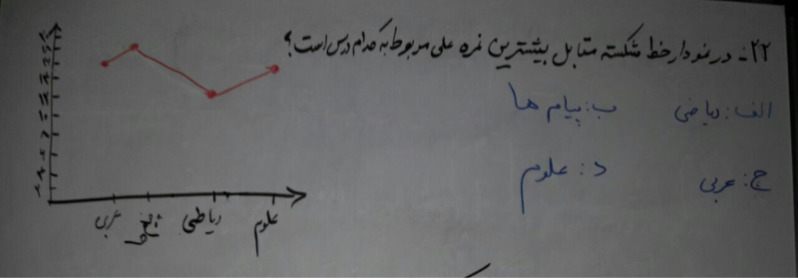 ۲۲- در نمودار خط شکسته متقابل بیشترین نمره علی مربوط به کدام درس است؟
الف: ریاضی ب: پیام ها
ج: عربی د: علوم
عربی ریاضی علوم